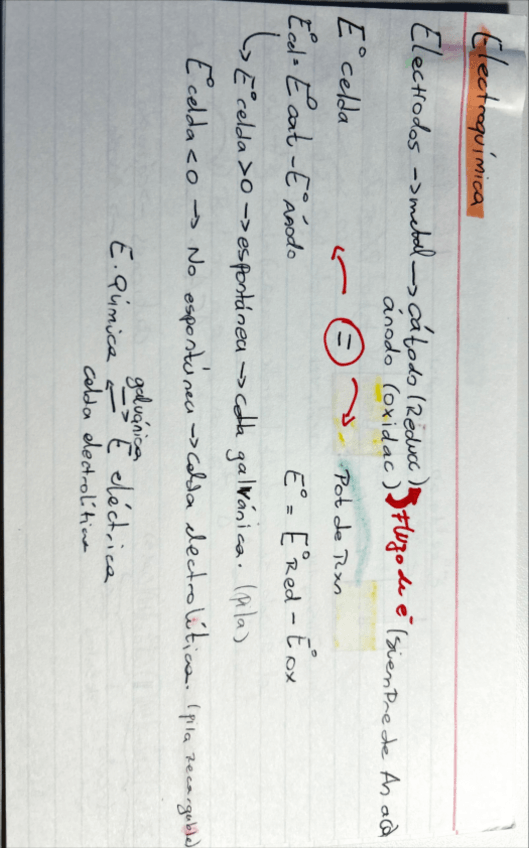 Electroquímica
Electrodos → metal → cátodo (Reducc)
ánodo (oxidac) Flujo de e⁻ (siempre de An a Cá)
E° celda ← = → Pot de rxn
E°cel = E°cat - E° ánodo E° = E°Red - E°ox
↳ E°celda > 0 → espontánea → celda galvánica. (pila)
E°celda < 0 → No espontánea → celda electrolítica. (pila recargable)
galvánica
E. Química ⇄ E eléctrica
celda electrolítica